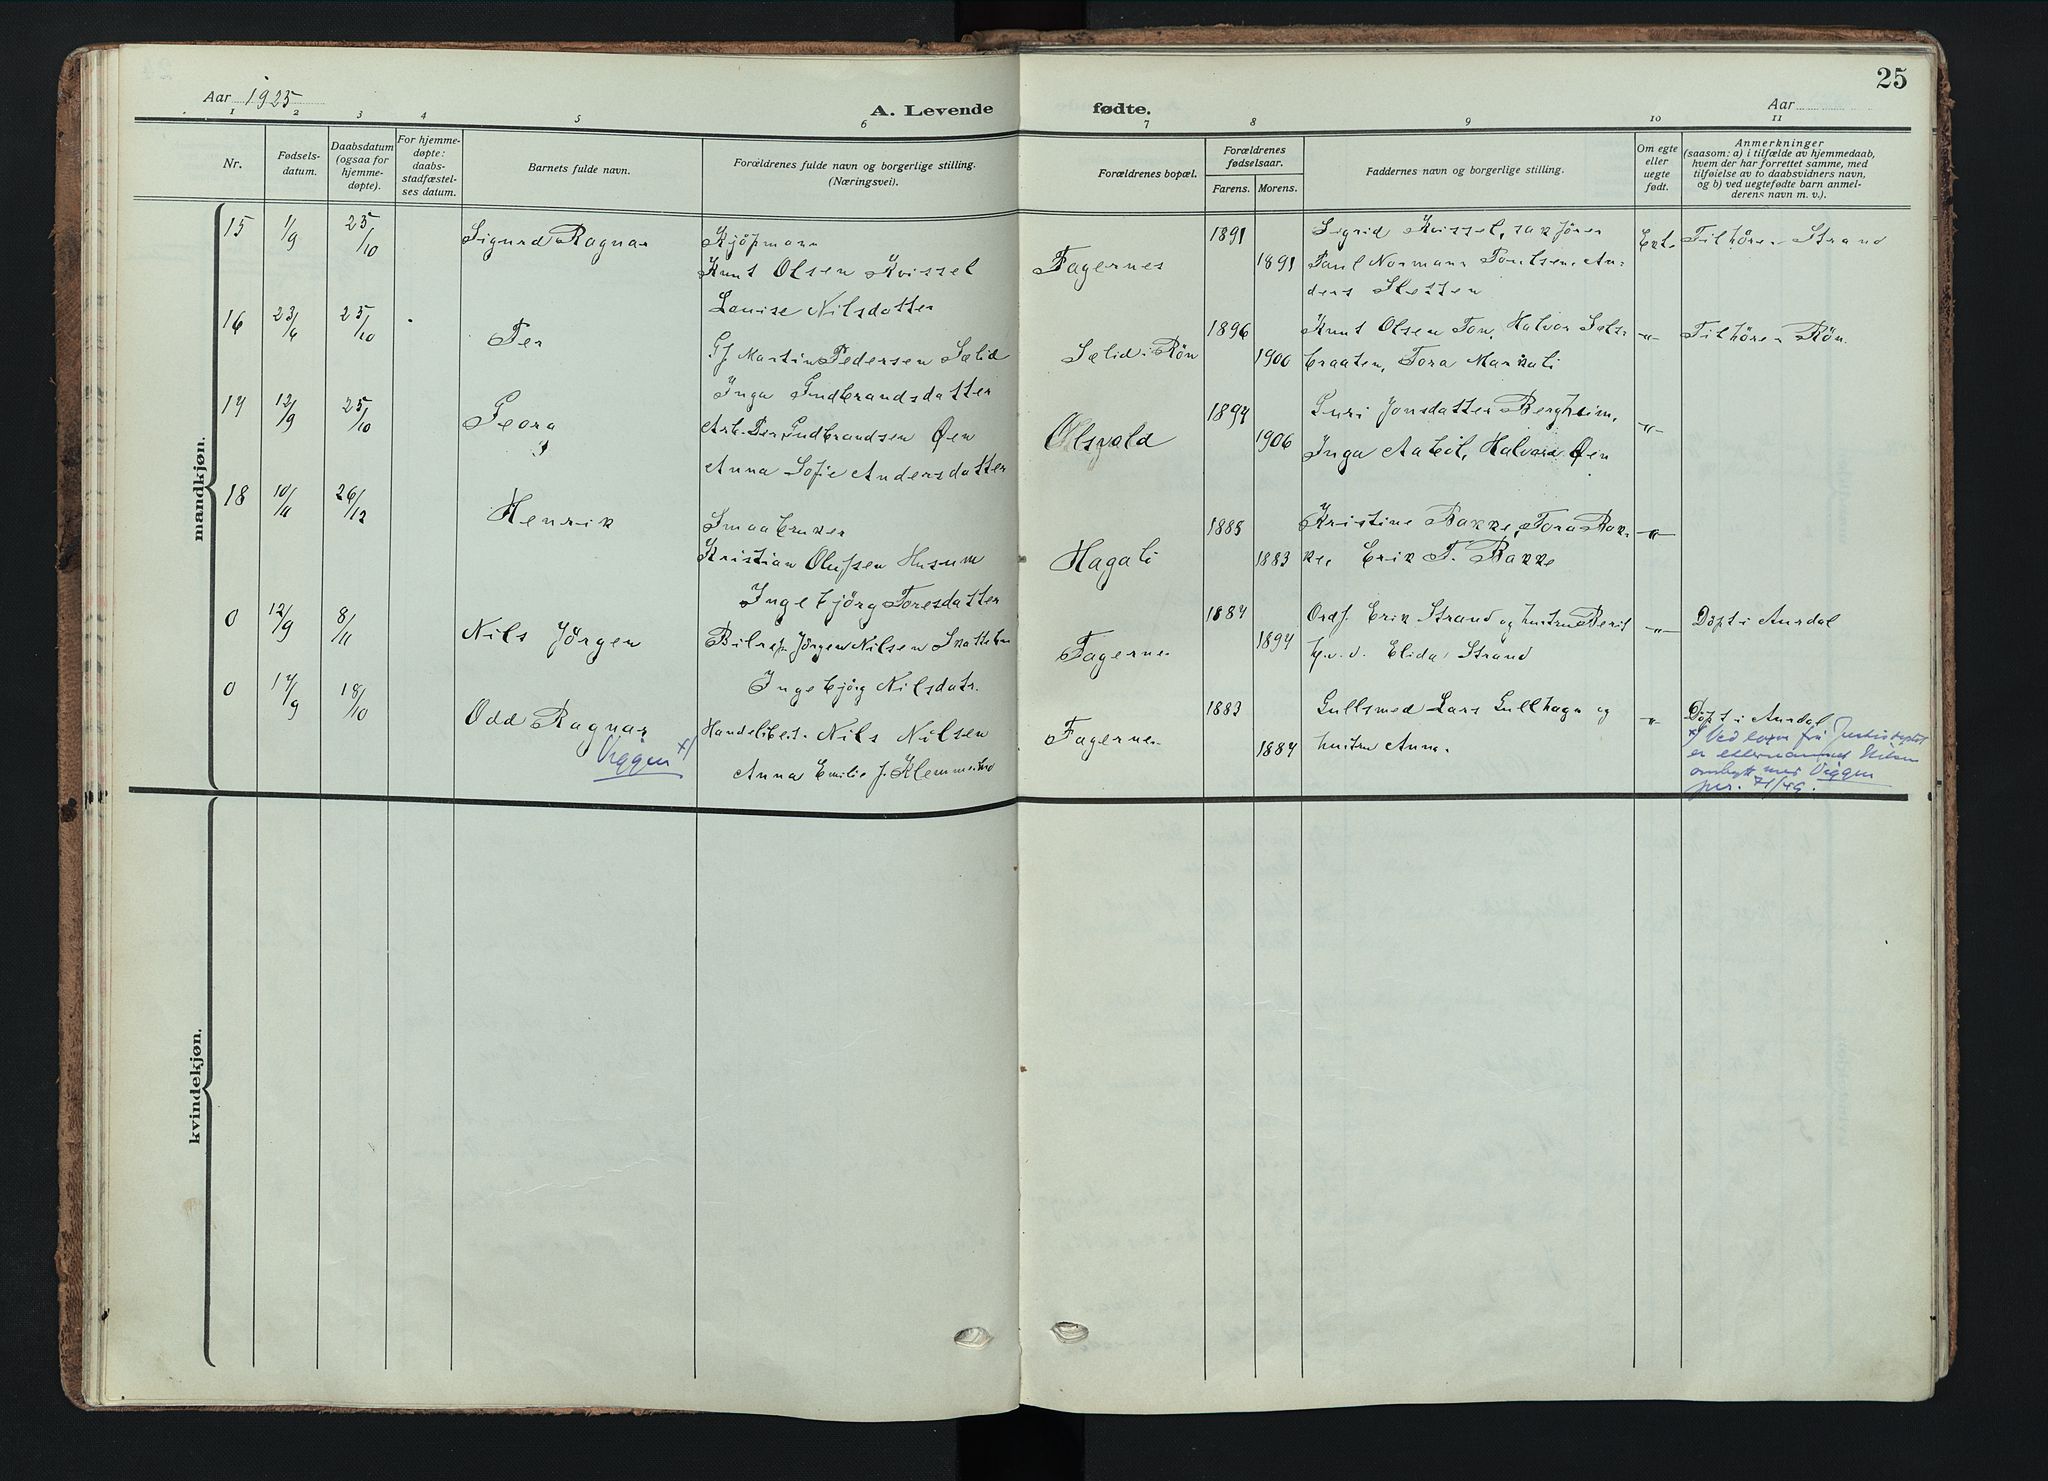 25
Aar 1925
A. Levende fødte.
Aar
1 2 3 4 5 6 7 8 9 10 11
Nr.
Fødsels-
datum.
Daabsdatum
(ogsaa for
hjemme-
døpte).
For hjemme-
døpte:
daabs-
stadfæstel-
ses datum.
Barnets fulde navn.
Forældrenes fulde navn og borgerlige stilling.
(Næringsvei).
Forældrenes bopæl.
Forældrenes
fødselsaar.
Farens. Morens.
Faddernes navn og borgerlige stilling.
Om egte
eller
uegte
født.
Anmerkninger
(saasom: a) i tilfælde av hjemmedaab,
hvem der har forrettet samme, med
tilføielse av to daabsvidners navn,
og b) ved uegtefødte barn anmel-
derens navn m. v.).
mandkjøn.
15 1/9 25/10 Sigurd Ragnar
Kjöpmann
Knut Olsen Kvissel
Louise Nilsdatter
Fagernes
1891
1891
Sigrid Kvissel,
Paul Norman Poulsen, An-
ders Sletten
Ekte
Tilhører Strand
16 23/6 25/10 Per
Gf Martin Pedersen Sælid
Inga Gudbrandsdatter
Sælid i Røn
1896
1900
Knut Olsen Ton, Halvor Sæls-
braaten, Tora Markali
-"-
Tilhører Røn.
17 12/9 25/10 Georg
Arb. Per Gudbrandsen Øen
Anna Sofie Andersdatter
Olsvold
1897
1906
Guri Jonsdatter Bergheim,
Inga Aaböl, Halvard Øen
-"-
18 10/11 26/12 Henrik
Smaabruker
Kristian Olufsen Husum
Ingebjörg Toresdatter
Hagali
1885
1883
Kristine Bakke, Tora Bak-
ke, Erik T. Bakke
-"-
0 12/9 8/11 Nils Jörgen
Bilrep. Jörgen Nilsen Skattebu
Ingebjörg Nilsdatr.
Fagernes
1884
1894
Ordf. Erik Strand og hustru Berit
Elida Strand
-"-
Döpt i Aurdal
0 17/9 18/10 Odd Ragnar
Viggen x)
Handelsbest. Nils Nilsen
Anna Emilie J. Klemmetsrud
Fagernes
1883
1884
Gullsmed Lars Gullhagn og
hustru Anna.
-"-
Döpt i Aurdal
x) Ved lovn fra Justisdeptet
er etternavnet Nilsen
ombytt med Viggen
jnr. 71/49.
kvindekjøn.